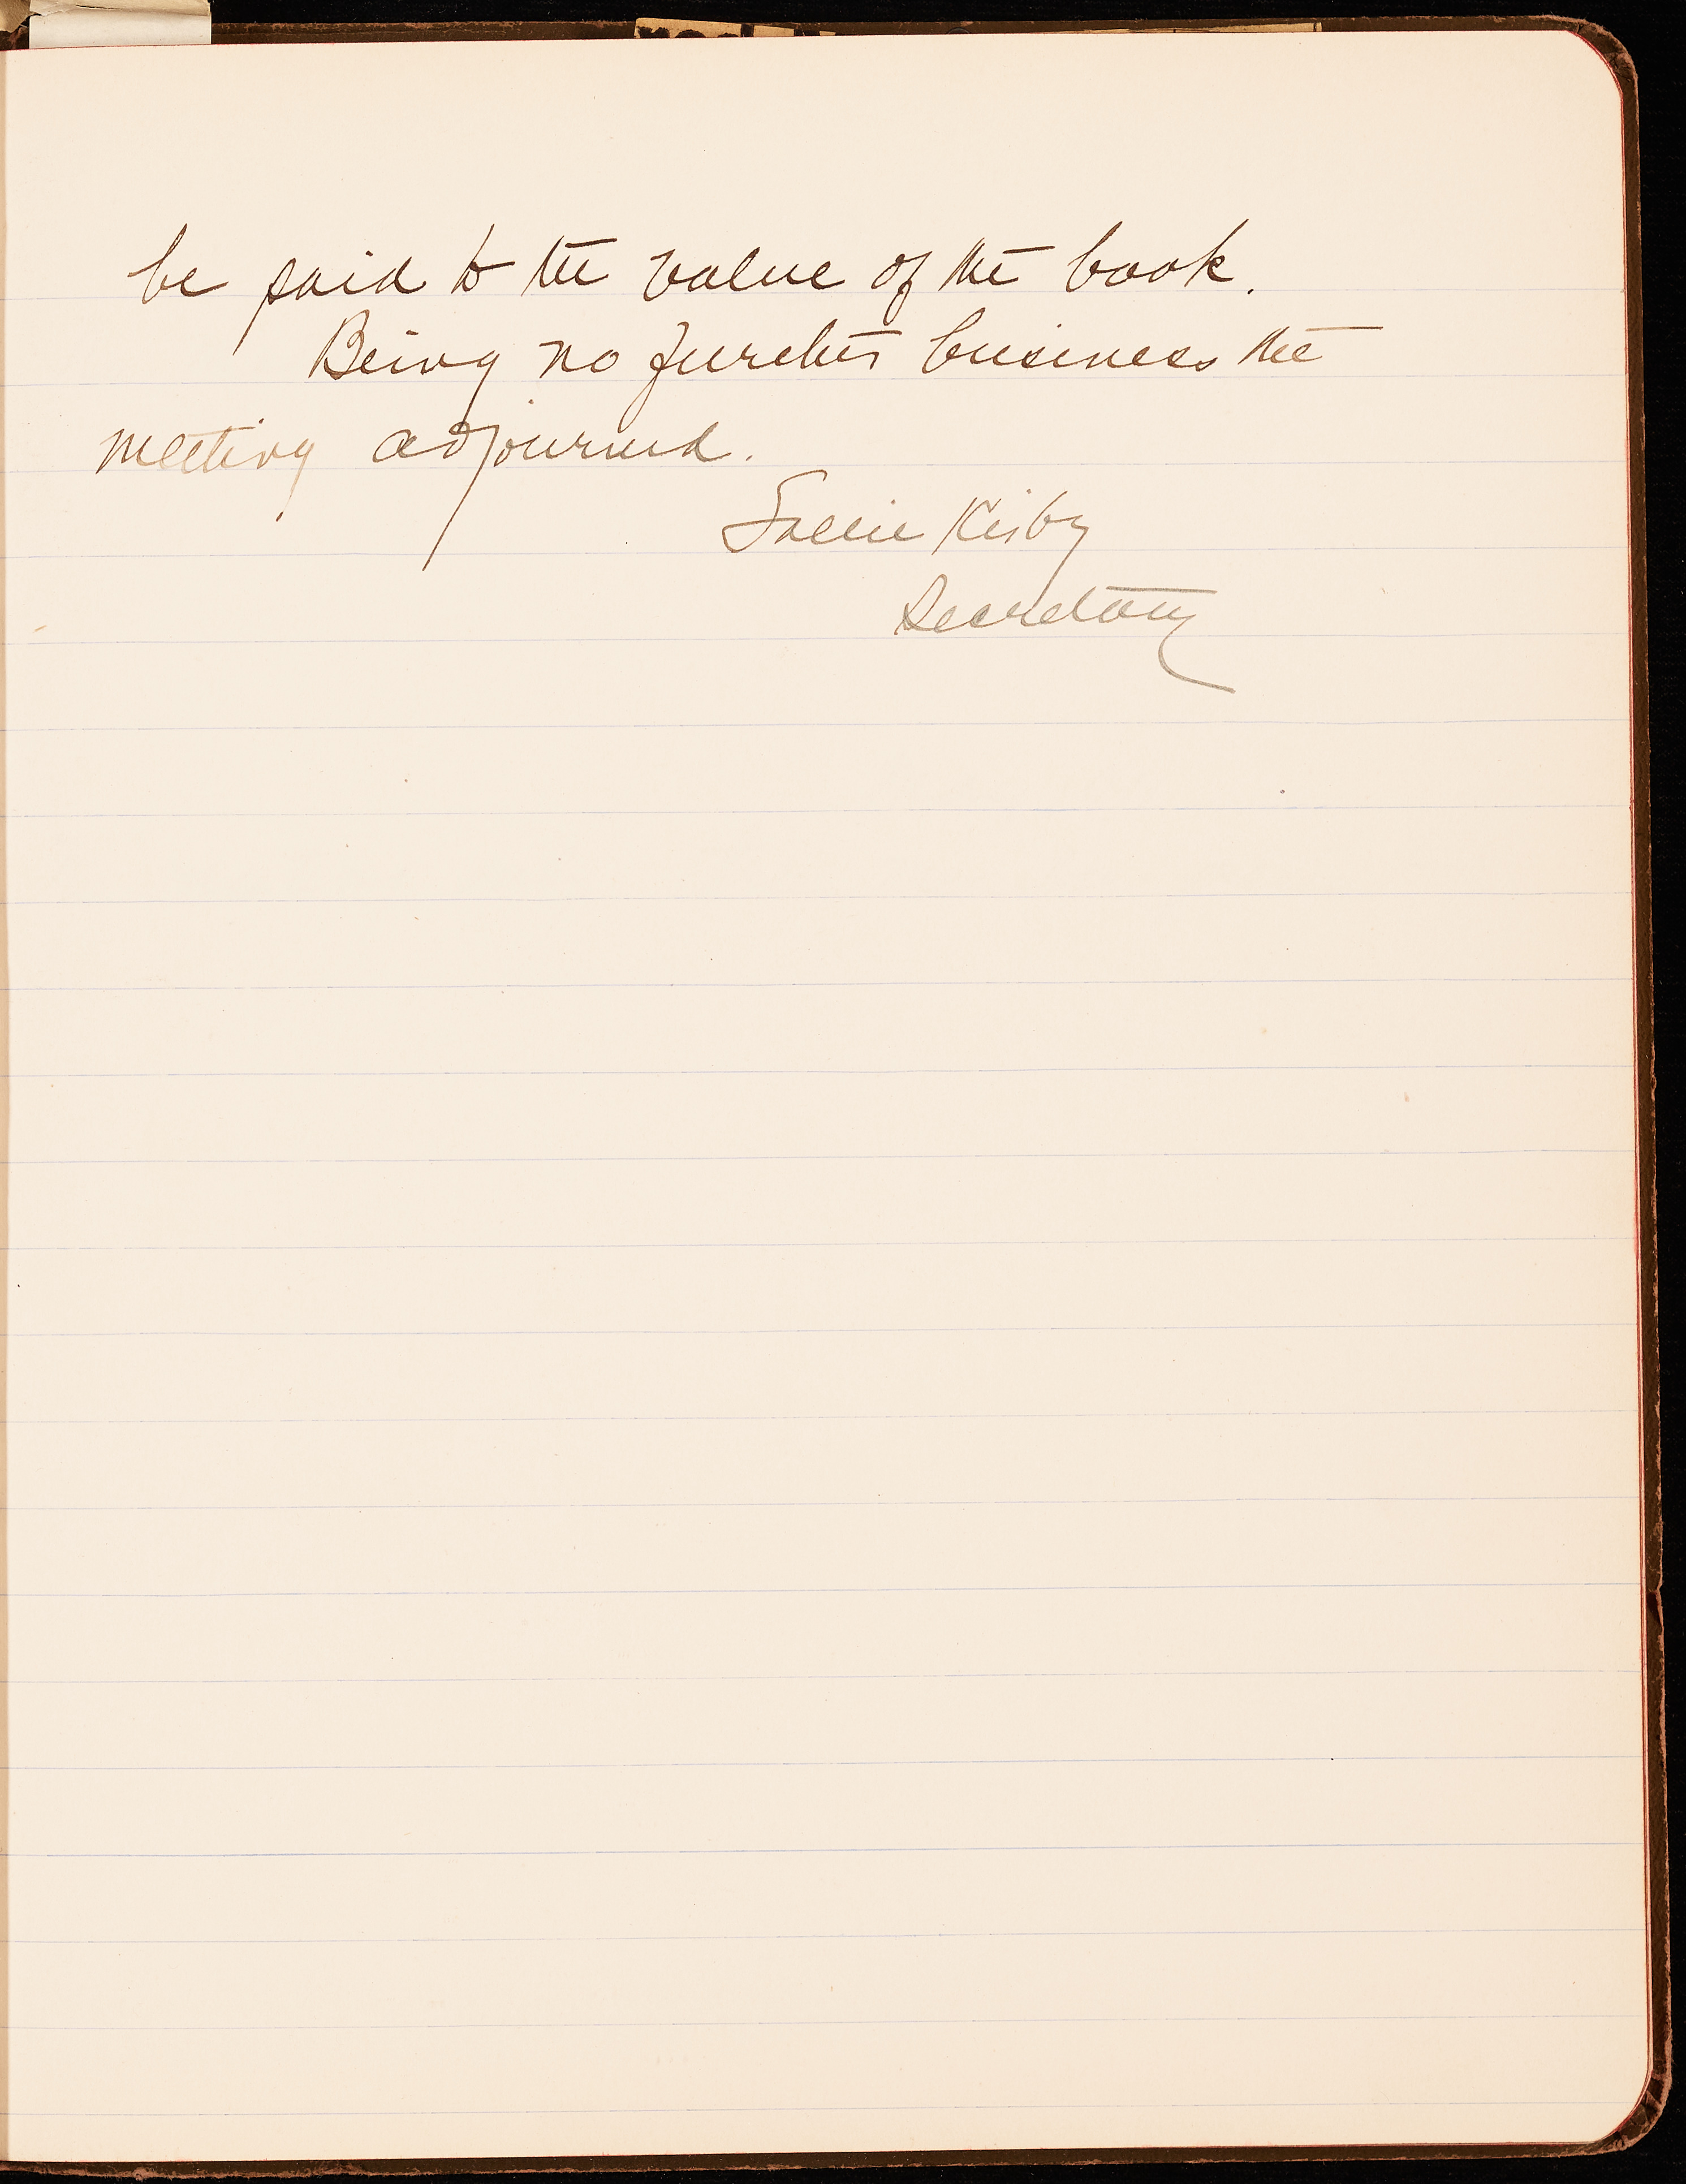 be paid to the value of the book.
Being no further business the
meeting adjourned.
Sallie Kirby
Secretary